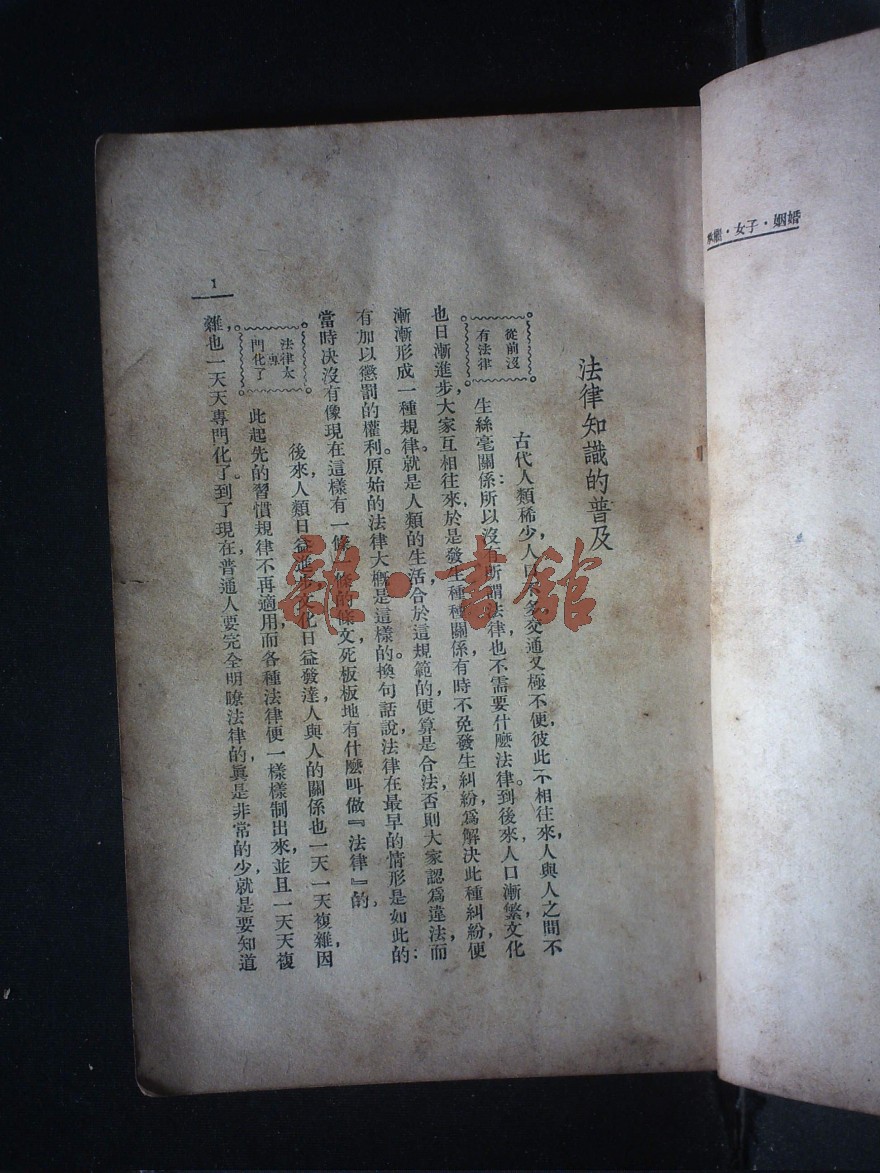 婚姻・子女・繼承
法律知識的普及
從前沒
有法律
古代人類稀少，人口不多，交通又極不便，彼此不相往來，人與人之間不
生絲毫關係；所以沒有所謂法律，也不需要什麼法律。到後來，人口漸繁，文化
也日漸進步，大家互相往來，於是發生種種關係，有時不免發生糾紛，爲解決此種糾紛，便
漸漸形成一種規律。就是人類的生活，合於這規範的，便算是合法，否則大家認爲違法，而
有加以懲罰的權利。原始的法律大概是這樣的。換句話說，法律在最早的情形是如此的；
當時決沒有像現在這樣有一條一條的條文，死板板地有什麼叫做『法律』的，
法律太
專
門化了
後來，人類日益進步，文化日益發達，人與人的關係也一天一天複雜，因
此起先的習慣規律不再適用，而各種法律便一樣樣制出來，並且一天天複
雜，也一天天專門化了。到了現在，普通人要完全明瞭法律的，眞是非常的少，就是要知道
1
雜・書館